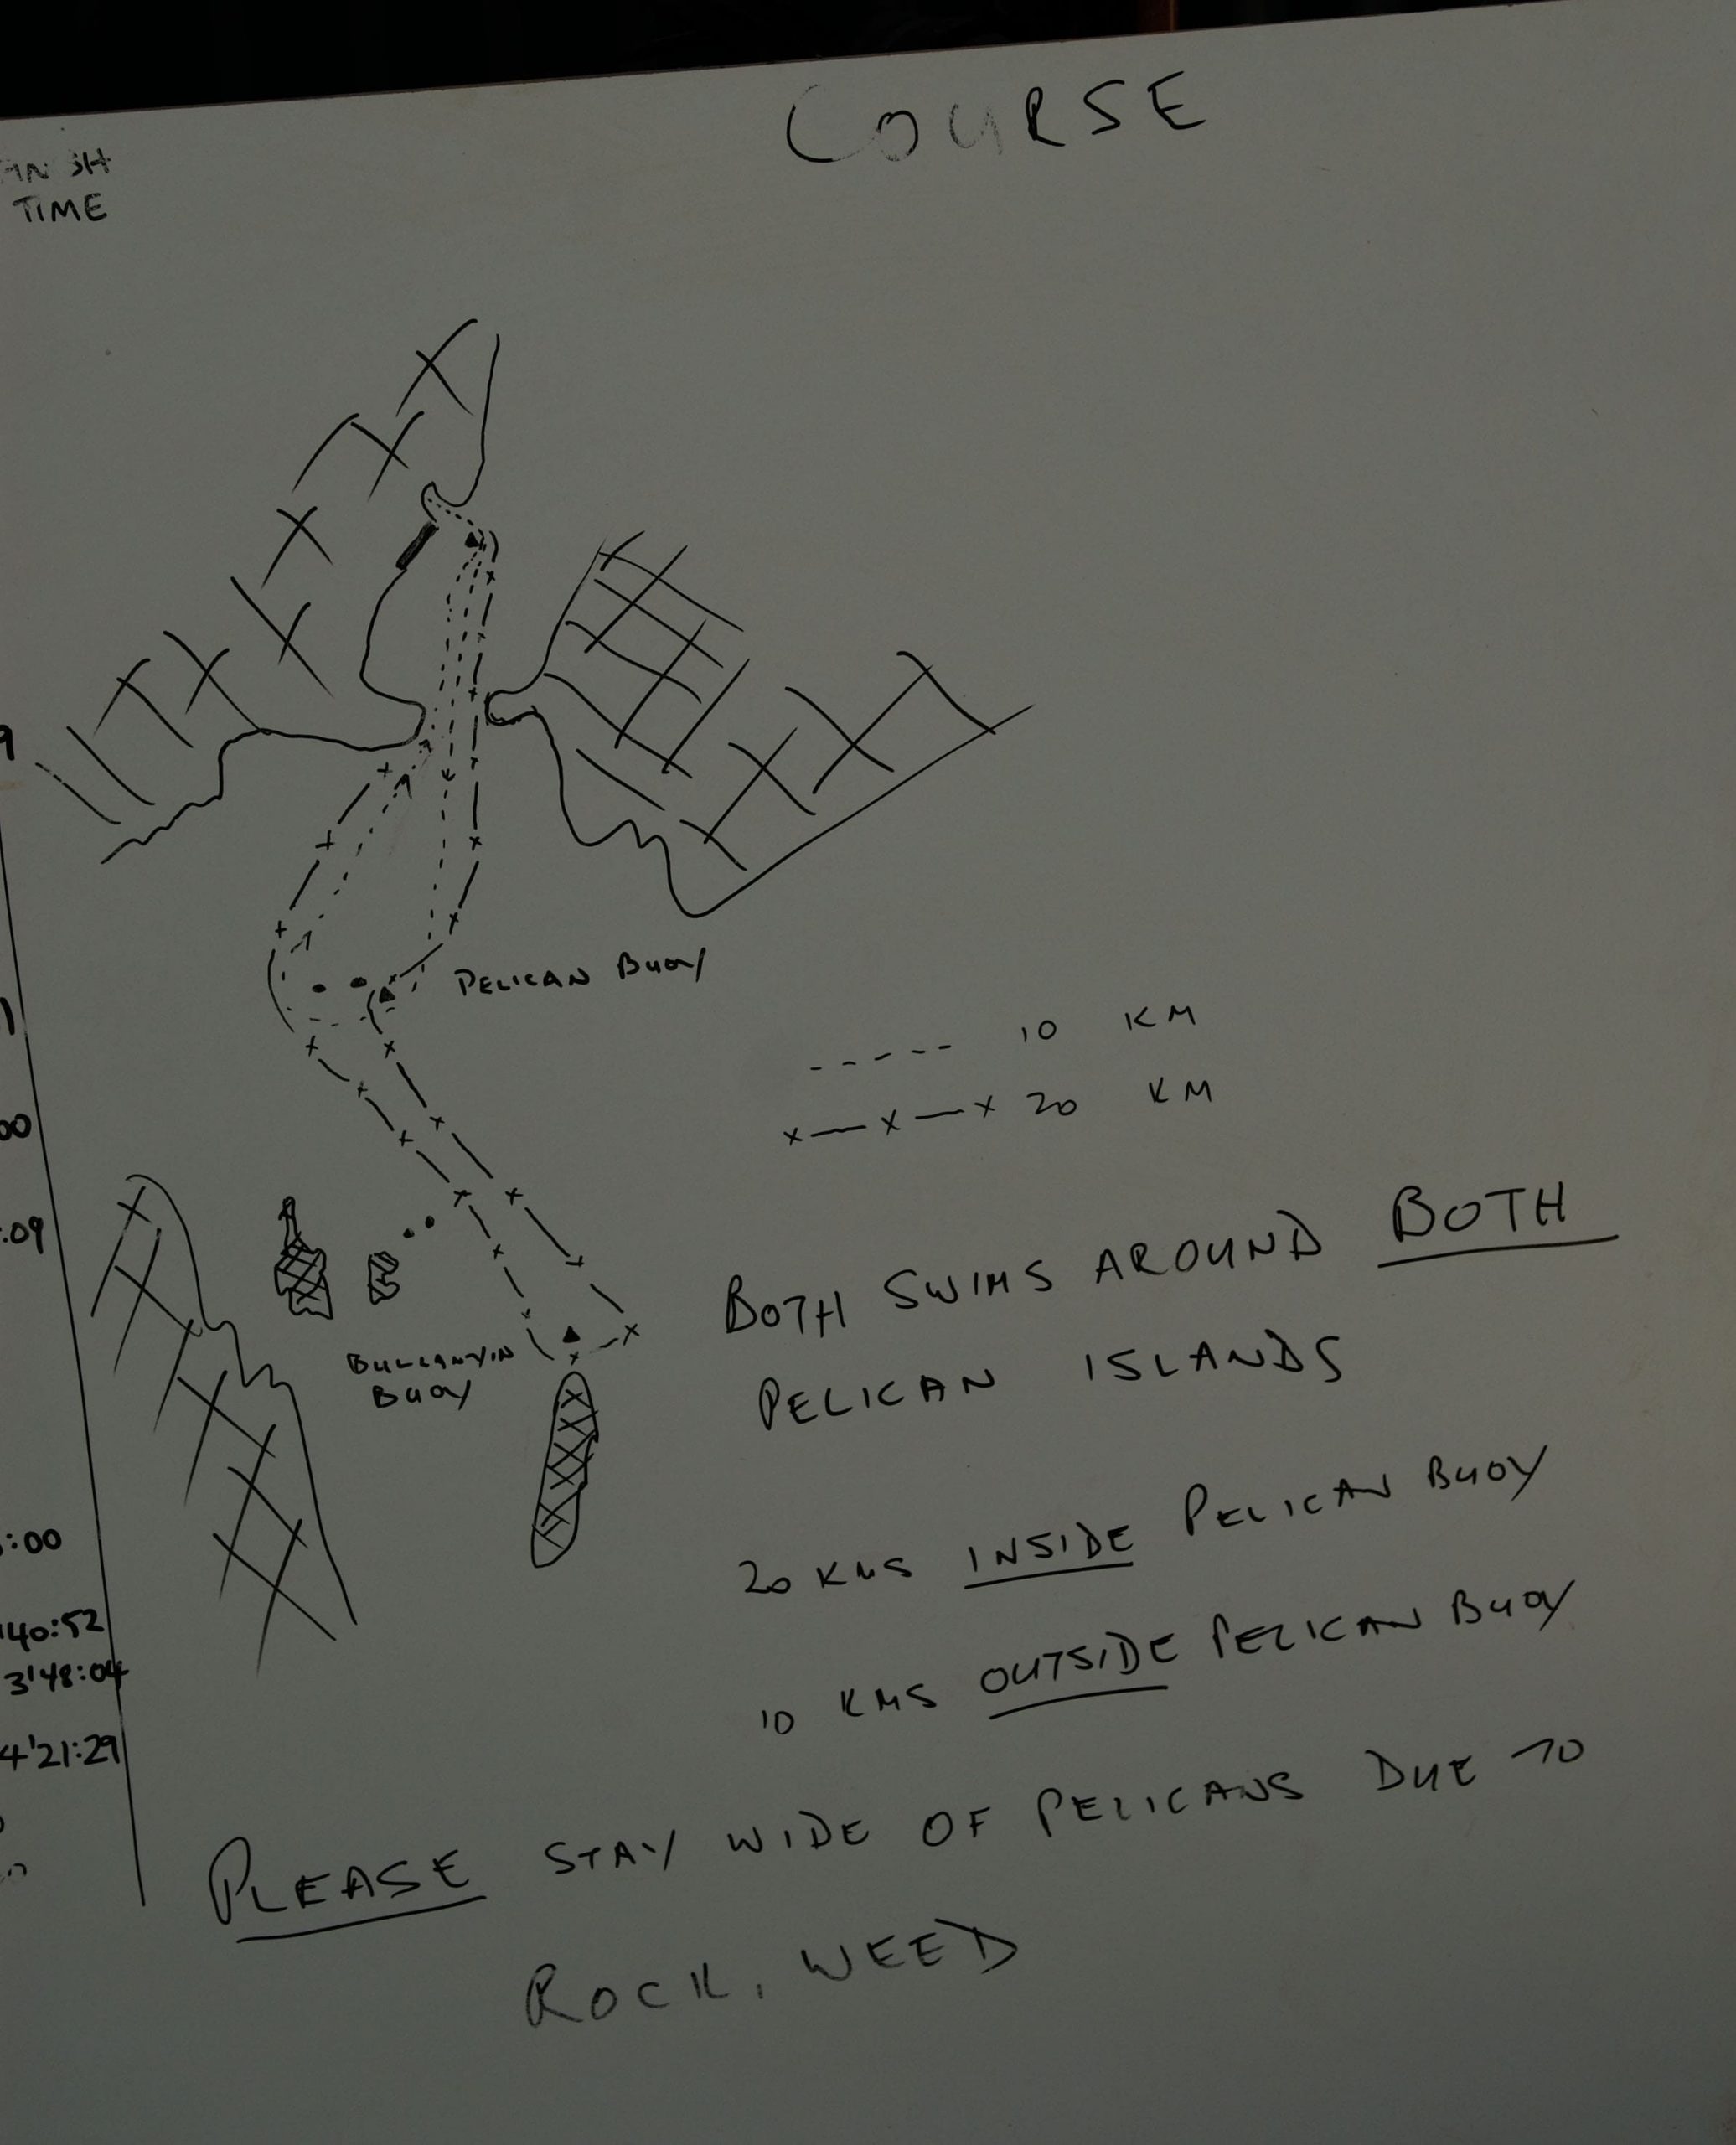 COURSE
TIME
PELICAN BUOY
10 KM
20 KM
:09
BOTH SWIMS AROUND BOTH
BUOY
PELICAN ISLANDS
20 KMS INSIDE PELICAN BUOY
:00
40:52
3'48:04
10 KMS OUTSIDE PELICAN BUOY
4'21:29
PLEASE STAY WIDE OF PELICANS DUE TO
ROCK, WEED